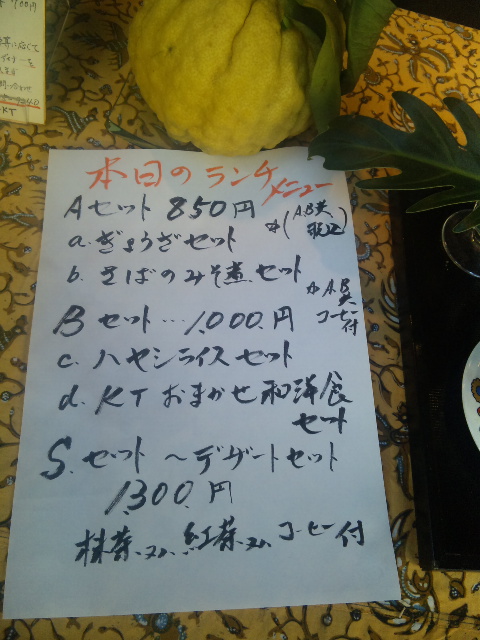 本日のランチ
メニュー
Aセット 850円
※(A.B共
税込)
a. ぎょうざセット
b. さばのみそ煮セット
※A.B
共
コーヒー
付
Bセット…1,000.円
c. ハヤシライスセット
d. KTおまかせ和洋食
セット
S.セット〜デザートセット
1300.円
抹茶.又ハ.紅茶.又ハ.コーヒー付